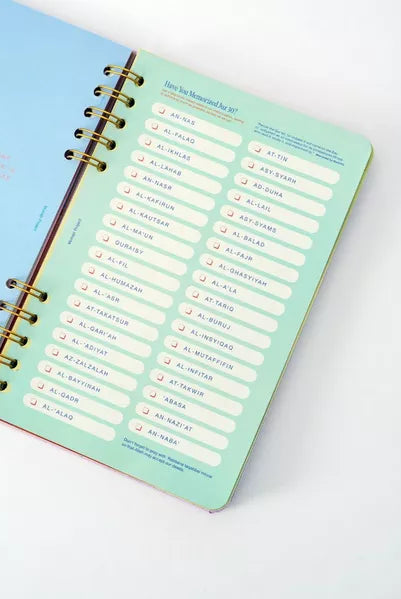 Have You Memorized Juz 30?
AN-NAS
AL-FALAQ
AL-IKHLAS
AL-LAHAB
AN-NASR
AL-KAFIRUN
AL-KAUTSAR
AL-MA'UN
QURAISY
AL-FIL
AL-HUMAZAH
AL-'ASR
AT-TAKATSUR
AL-QARI'AH
AL-'ADIYAT
AZ-ZALZALAH
AL-BAYYINAH
AL-QADR
AL-'ALAQ
AT-TIN
ASY-SYARH
AD-DUHA
AL-LAIL
ASY-SYAMS
AL-BALAD
AL-FAJR
AL-GHASYIYAH
AL-A'LA
AT-TARIQ
AL-BURUJ
AL-INSYIQAQ
AL-MUTAFFIFIN
AL-INFITAR
AT-TAKWIR
'ABASA
AN-NAZI'AT
AN-NABA'
Don't forget to pray with
so that Allah may accept our deeds.